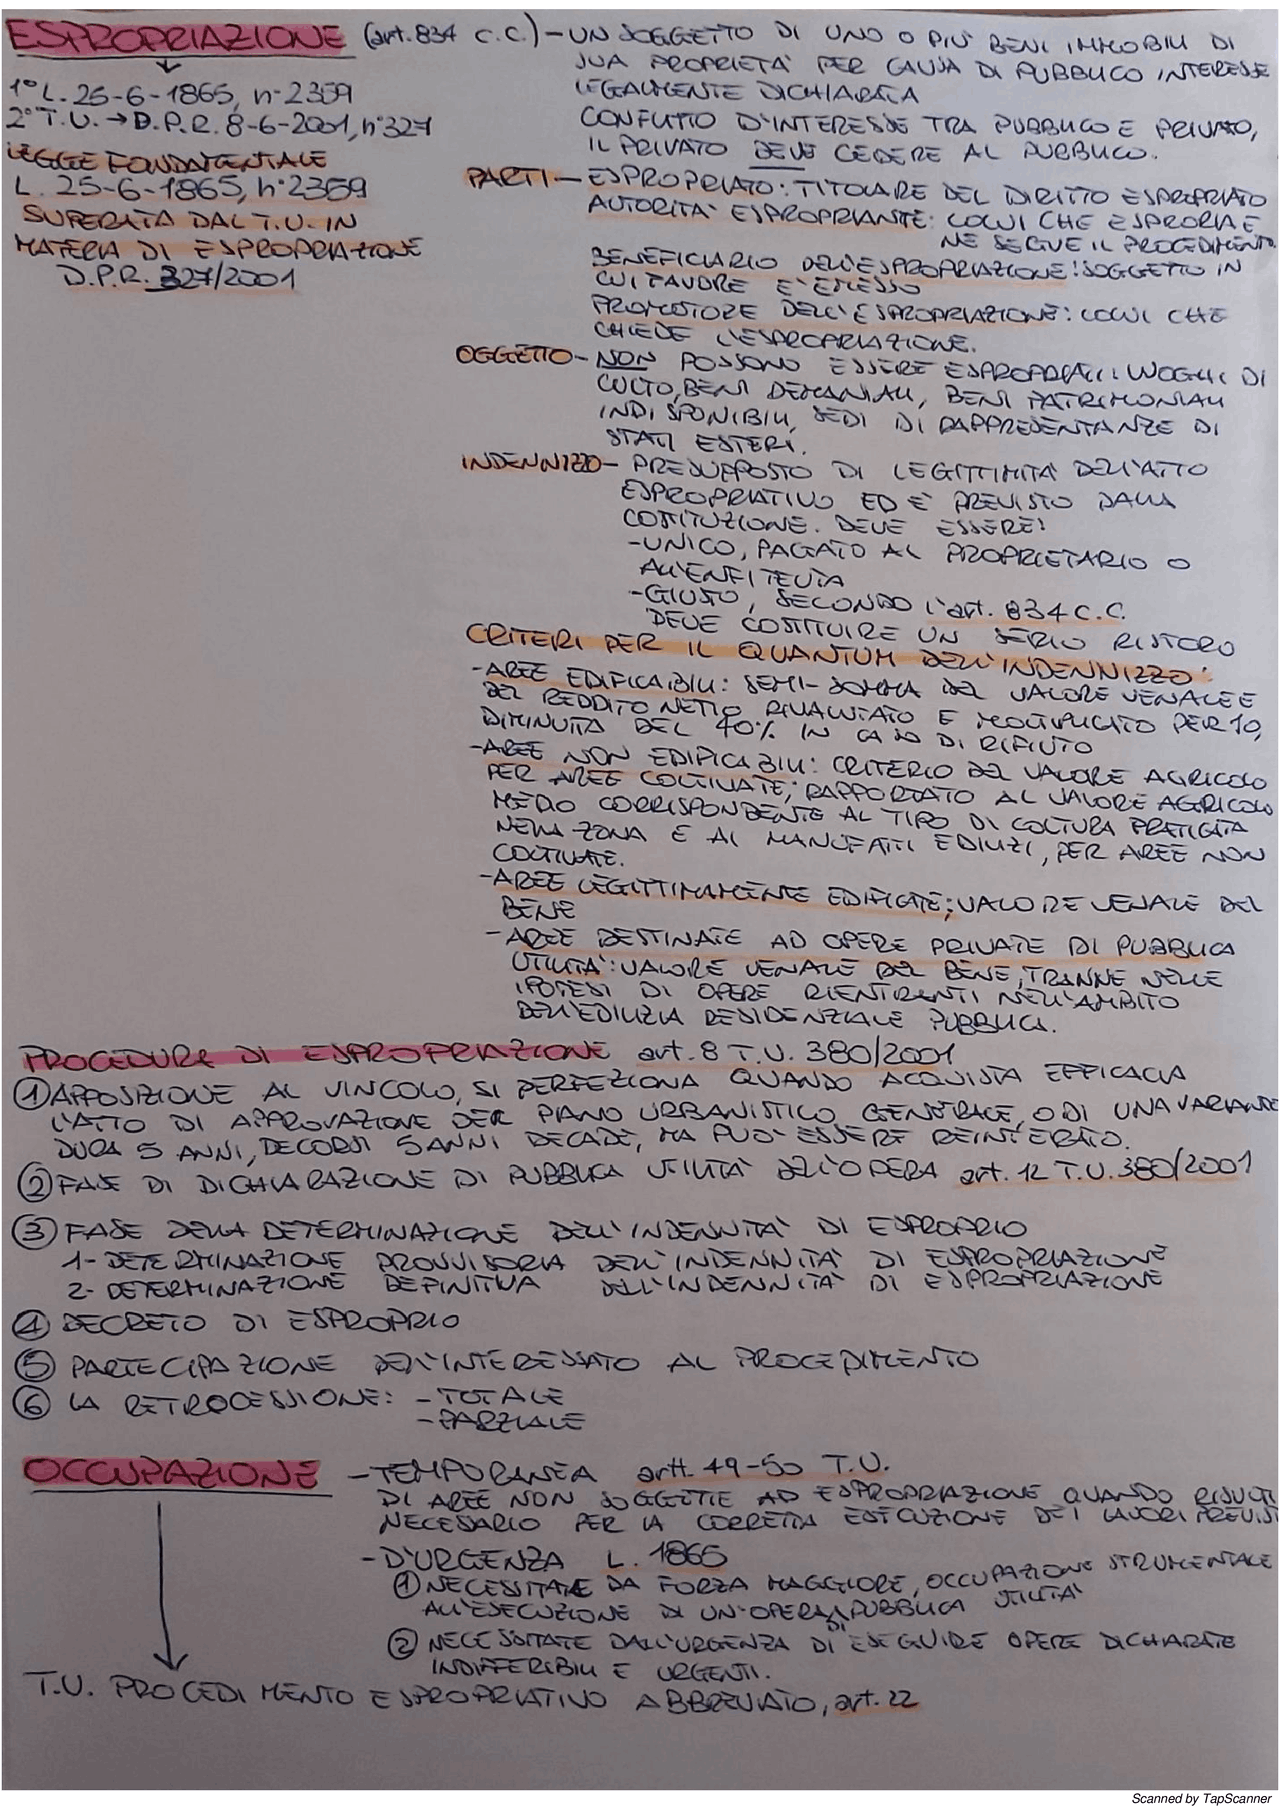 ESPROPRIAZIONE (art. 834 c.c.) – UN SOGGETTO DI UNO O PIÙ BENI IMMOBILI DI
SUA PROPRIETÀ PER CAUSA DI PUBBLICO INTERESSE
LEGALMENTE DICHIARATA
CONFLITTO D'INTERESSE TRA PUBBLICO E PRIVATO,
IL PRIVATO DEVE CEDERE AL PUBBLICO.
1° L. 25-6-1865, n° 2359
2° T.U. → D.P.R. 8-6-2001, n° 327
LEGGE FONDAMENTALE
L. 25-6-1865, n° 2359
SUPERATA DAL T.U. IN
MATERIA DI ESPROPRIAZIONE
D.P.R. 327/2001
PARTI – ESPROPRIATO: TITOLARE DEL DIRITTO ESPROPRIATO
AUTORITÀ ESPROPRIANTE: COLUI CHE ESPROPRIA E
NE SEGUE IL PROCEDIMENTO
BENEFICIARIO DELL'ESPROPRIAZIONE: SOGGETTO IN
CUI FAVORE E' EMESSO
PROMOTORE DELL'ESPROPRIAZIONE: COLUI CHE
CHIEDE L'ESPROPRIAZIONE.
OGGETTO – NON POSSONO ESSERE ESPROPRIATI: LUOGHI DI
CULTO, BENI DEMANIALI, BENI PATRIMONIALI
INDISPONIBILI, SEDI DI RAPPRESENTANZE DI
STATI ESTERI.
INDENNIZZO – PRESUPPOSTO DI LEGITTIMITÀ DELL'ATTO
ESPROPRIATIVO ED E' PREVISTO DALLA
COSTITUZIONE. DEVE ESSERE:
- UNICO, PAGATO AL PROPRIETARIO O
ALL'ENFITEUTA
- GIUSTO, SECONDO l'art. 834 c.c.
DEVE COSTITUIRE UN SERIO RISTORO
CRITERI PER IL QUANTUM DELL'INDENNIZZO:
- AREE EDIFICABILI: SEMI-SOMMA DEL VALORE VENALE E
DEL REDDITO NETTO RIVALUTATO E MOLTIPLICATO PER 10,
DIMINUITA DEL 40% IN CASO DI RIFIUTO
- AREE NON EDIFICABILI: CRITERIO DEL VALORE AGRICOLO
PER AREE COLTIVATE; RAPPORTATO AL VALORE AGRICOLO
MEDIO CORRISPONDENTE AL TIPO DI COLTURA PRATICATA
NELLA ZONA E AI MANUFATTI EDILIZI, PER AREE NON
COLTIVATE.
- AREE LEGITTIMAMENTE EDIFICATE; VALORE VENALE DEL
BENE
- AREE DESTINATE AD OPERE PRIVATE DI PUBBLICA
UTILITÀ: VALORE VENALE DEL BENE, TRANNE NELLE
IPOTESI DI OPERE RIENTRANTI NELL'AMBITO
DELL'EDILIZIA RESIDENZIALE PUBBLICA.
PROCEDURE DI ESPROPRIAZIONE art. 8 T.U. 380/2001
① APPOSIZIONE AL VINCOLO, SI PERFEZIONA QUANDO ACQUISTA EFFICACIA
L'ATTO DI APPROVAZIONE DEL PIANO URBANISTICO GENERALE, O DI UNA VARIANTE
DURA 5 ANNI, DECORSI 5 ANNI DECADE, MA PUO' ESSERE REINTERATO.
② FASE DI DICHIARAZIONE DI PUBBLICA UTILITÀ DELL'OPERA art. 12 T.U. 380/2001
③ FASE DELLA DETERMINAZIONE DELL'INDENNITÀ DI ESPROPRIO
1- DETERMINAZIONE PROVVISORIA DELL'INDENNITÀ DI ESPROPRIAZIONE
2- DETERMINAZIONE DEFINITIVA DELL'INDENNITÀ DI ESPROPRIAZIONE
④ DECRETO DI ESPROPRIO
⑤ PARTECIPAZIONE DELL'INTERESSATO AL PROCEDIMENTO
⑥ LA RETROCESSIONE: - TOTALE
- PARZIALE
OCCUPAZIONE - TEMPORANEA artt. 49-50 T.U.
DI AREE NON SOGGETTE AD ESPROPRIAZIONE QUANDO RISULTI
NECESSARIO PER LA CORRETTA ESECUZIONE DEI LAVORI PREVISTI
- D'URGENZA L. 1865
① NECESSITATE DA FORZA MAGGIORE, OCCUPAZIONE STRUMENTALE
ALL'ESECUZIONE DI UN'OPERA DI PUBBLICA UTILITÀ
② NECESSITATE DALL'URGENZA DI ESEGUIRE OPERE DICHIARATE
INDIFFERIBILI E URGENTI.
T.U. PROCEDIMENTO ESPROPRIATIVO ABBREVIATO, art. 22
Scanned by TapScanner